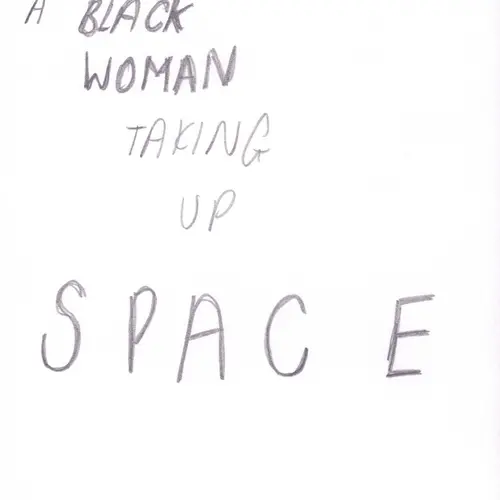 A BLACK
WOMAN
TAKING
UP
SPACE